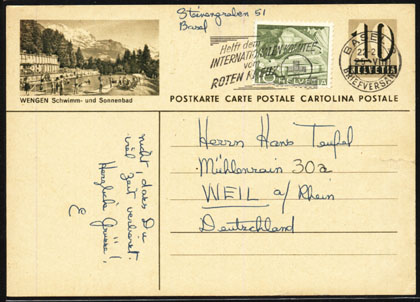 Steinengraben 51
Basel
Helft dem
INTERNATIONALEN KOMITEE
vom
ROTEN KREUZ
BASEL
BRIEFVERSAND
10
HELVETIA
WENGEN Schwimm- und Sonnenbad
POSTKARTE CARTE POSTALE CARTOLINA POSTALE
nicht, dass Du
viel Zeit verlierst.
Herzliche Grüsse!
E
Herrn Hans Teufel
Mühlenrain 30a
WEIL a/Rhein
Deutschland